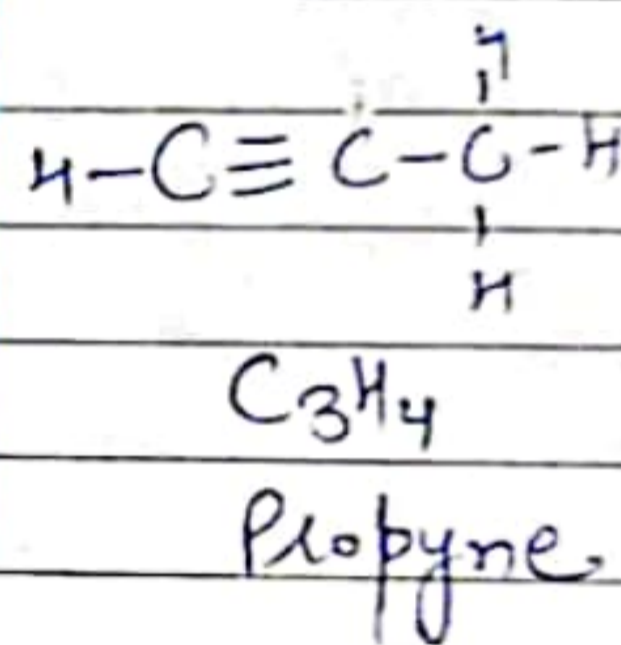 H
H–C≡C–C–H
H
C₃H₄
Propyne